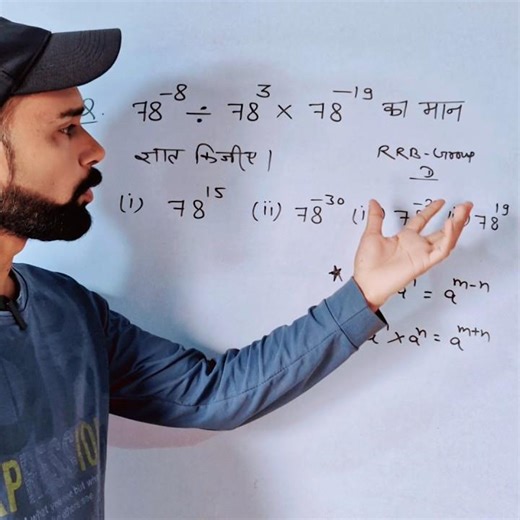 Q. 78⁻⁸ ÷ 78³ × 78⁻¹⁹ का मान
ज्ञात कीजीए।
RRB-Group
D
(i) 78¹⁵ (ii) 78⁻³⁰ 78¹⁹
★ = aᵐ⁻ⁿ
× aⁿ = aᵐ⁺ⁿ